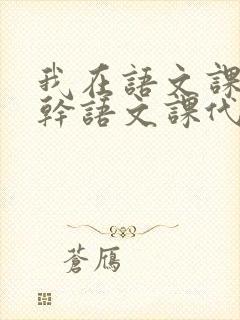 我在語文課
幹語文課代
蒼鴈